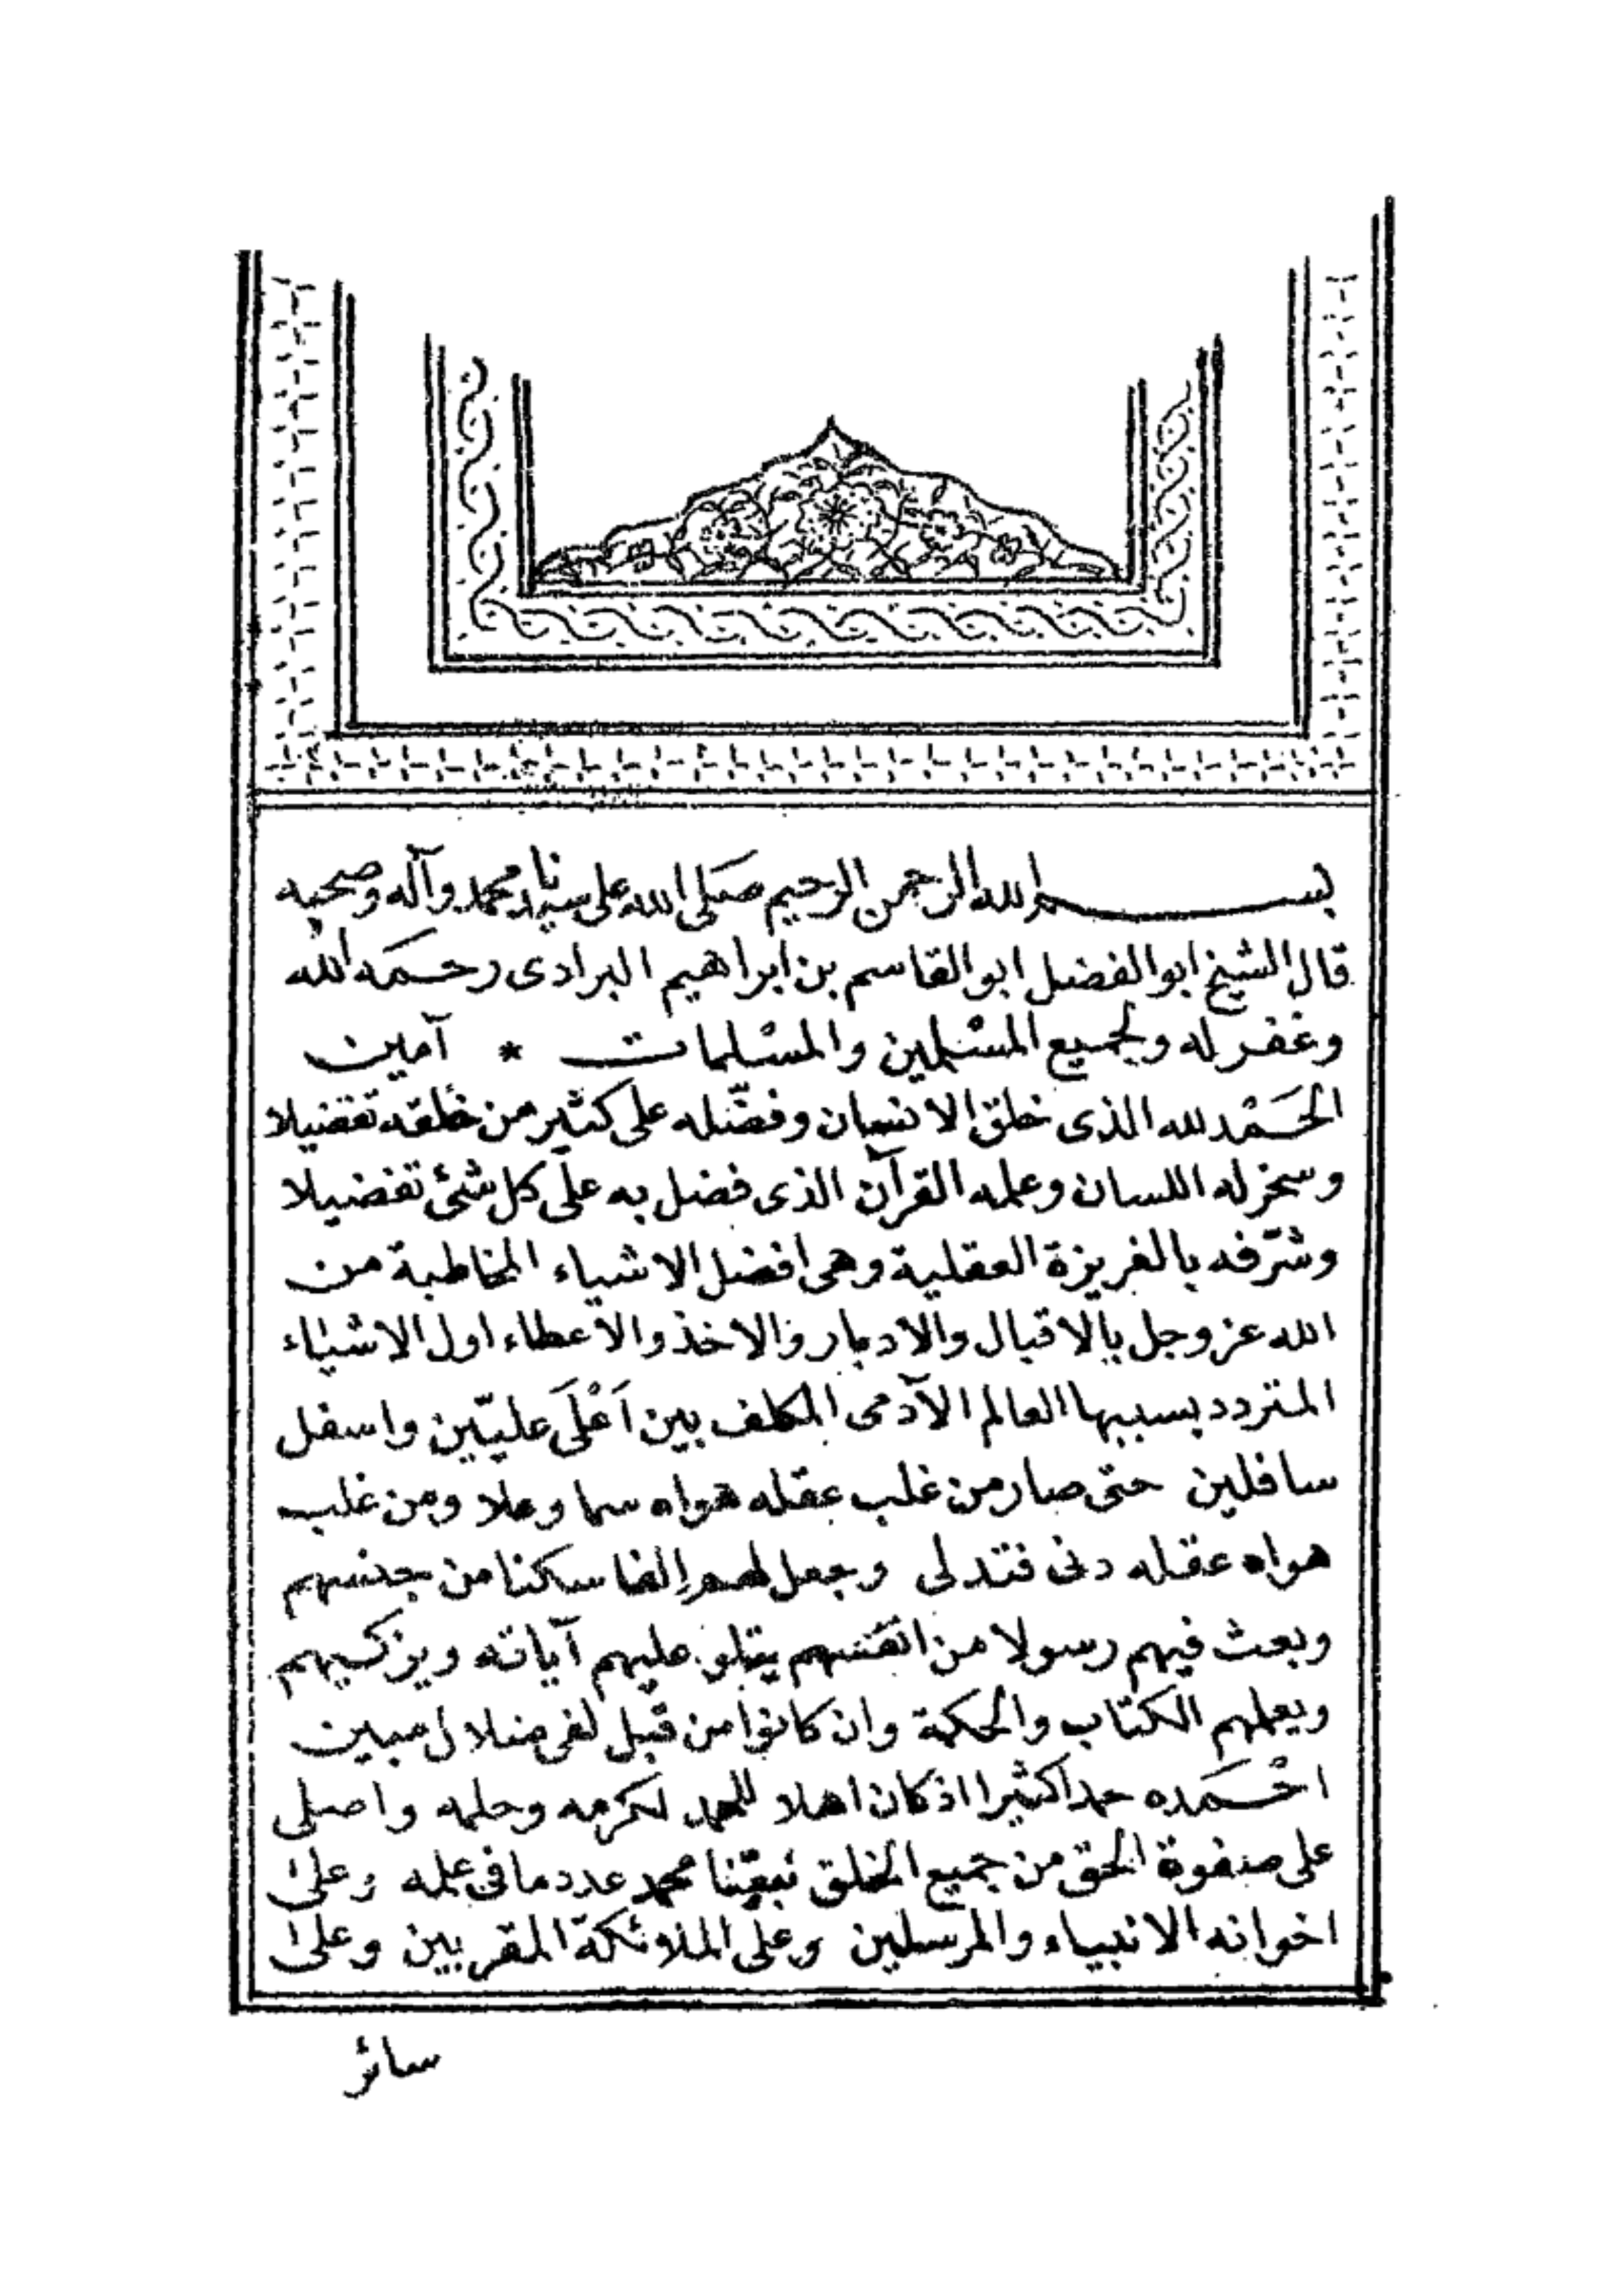 بسم الله الرحمن الرحيم صلى الله على سيدنا محمد وآله وصحبه
قال الشيخ ابو الفضل ابو القاسم بن ابراهيم البرادى رحمه الله
وغفر له ولجميع المسْلمين والمسْلمات * آمين
الحَمْد لله الذى خلق الانسان وفضّله على كثير من خلقه تفضيلا
وسخر له اللسان وعلمه القرآن الذى فضل به على كل شئ تفضيلا
وشرّفه بالغريزة العقلية وهى افضل الاشياء المخاطبة من
الله عز وجل بالاقبال والادبار والاخذ والاعطاء اول الاشياء
المتردد بسببها العالم الآدمى المكلف بين اَعْلَى عليّين واسفل
سافلين حتى صار من غلب عقله هواه سما وعلا ومن غلب
هواه عقله دنى فتدلى وجعل لهم سكنا من جنسهم
وبعث فيهم رسولا من انفسهم يتلو عليهم آياته ويزكيهم
ويعلمهم الكتاب والحكمة وان كانوا من قبل لفى ضلال مبين
احْمَده حمدا كثيرا اذ كان اهلا للحمد لكرمه وحلمه واصلى
على صفوة الحق من جميع الخلق نبيّنا محمد عدد ما فى علمه وعلى
اخوانه الانبياء والمرسلين وعلى الملائكة المقربين وعلى
سائر